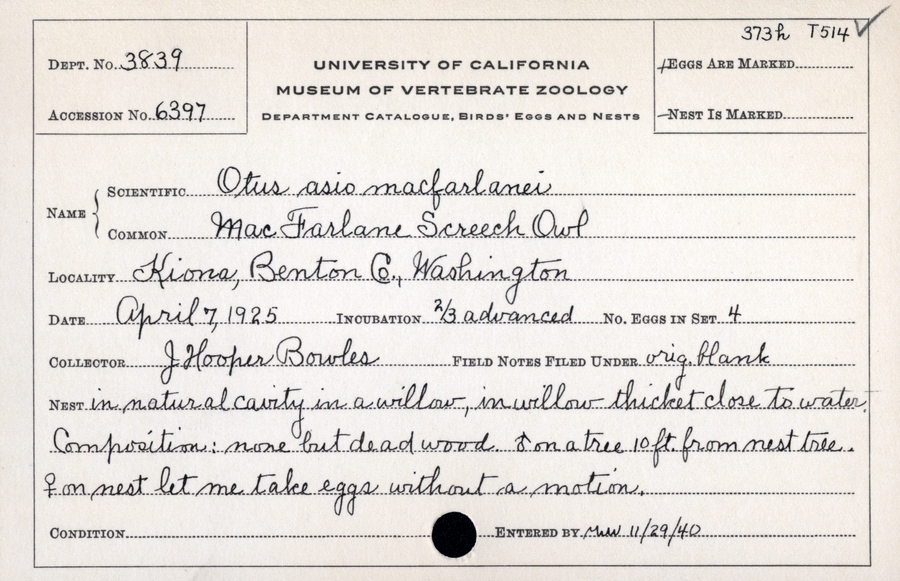 373h T514 ✓
DEPT. No. 3839
UNIVERSITY OF CALIFORNIA
EGGS ARE MARKED
MUSEUM OF VERTEBRATE ZOOLOGY
ACCESSION No. 6397
DEPARTMENT CATALOGUE, BIRDS' EGGS AND NESTS
NEST IS MARKED
NAME
SCIENTIFIC Otus asio macfarlanei
COMMON Mac Farlane Screech Owl
LOCALITY Kiona, Benton Co., Washington
DATE April 7, 1925 INCUBATION 2/3 advanced No. EGGS IN SET 4
COLLECTOR J Hooper Bowles FIELD NOTES FILED UNDER orig. blank
NEST in natural cavity in a willow, in willow thicket close to water.
Composition: none but dead wood. ♂ on a tree 10 ft. from nest tree.
♀ on nest let me take eggs without a motion.
CONDITION ENTERED BY 11/29/40